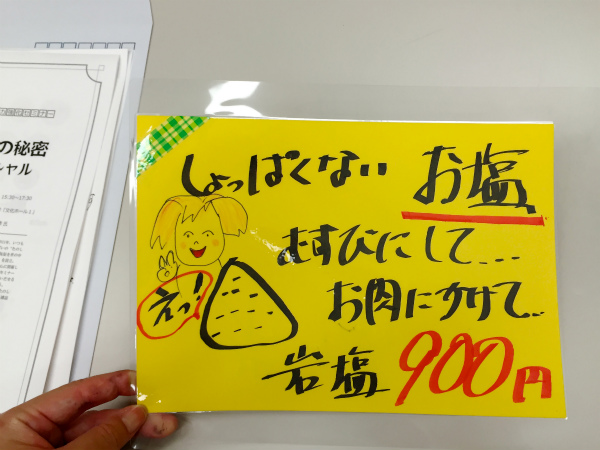 の秘密
シャル
しょっぱくない お塩
むすびにして...
お肉にかけて..
えっ!
岩塩 900円